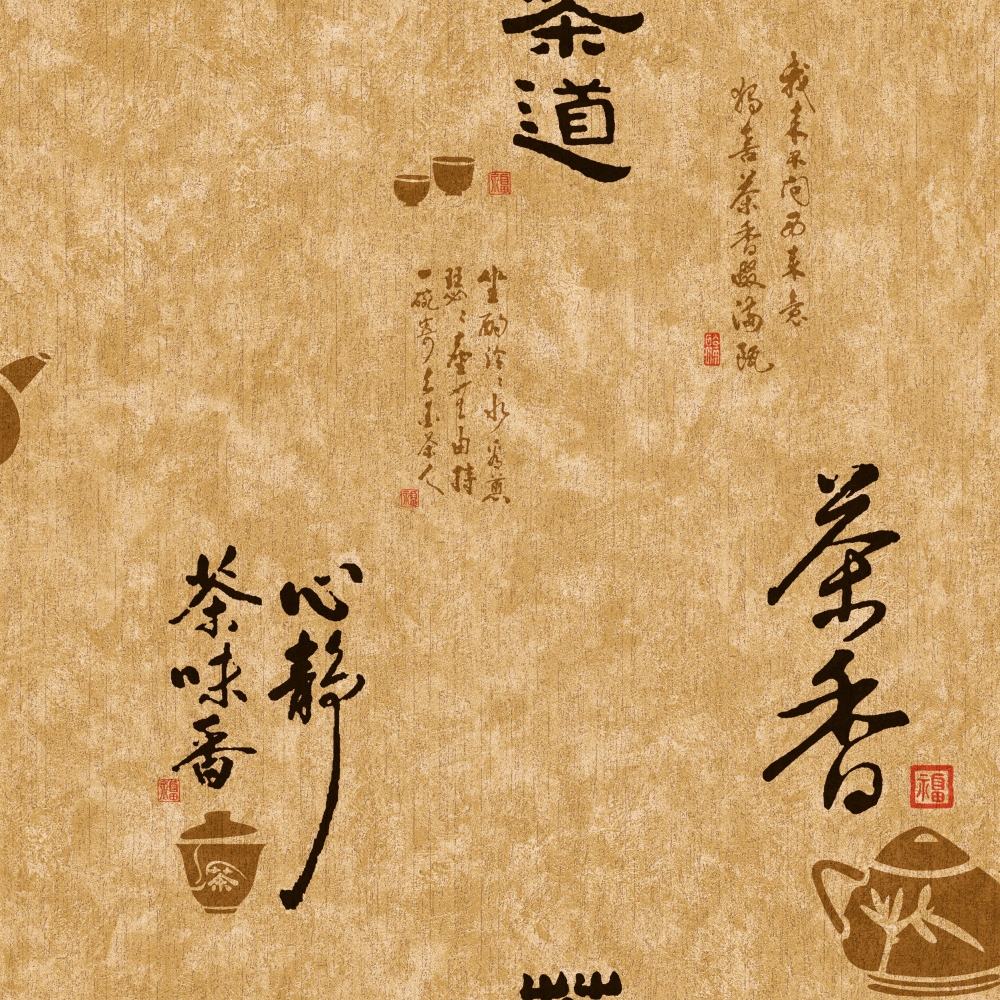 茶道
我来不问西来意
独喜茶香啜满瓯
坐酌泠泠水看煎
瑟瑟尘无由持
一碗寄与爱茶人
心静
茶味香
茶香
福
茶